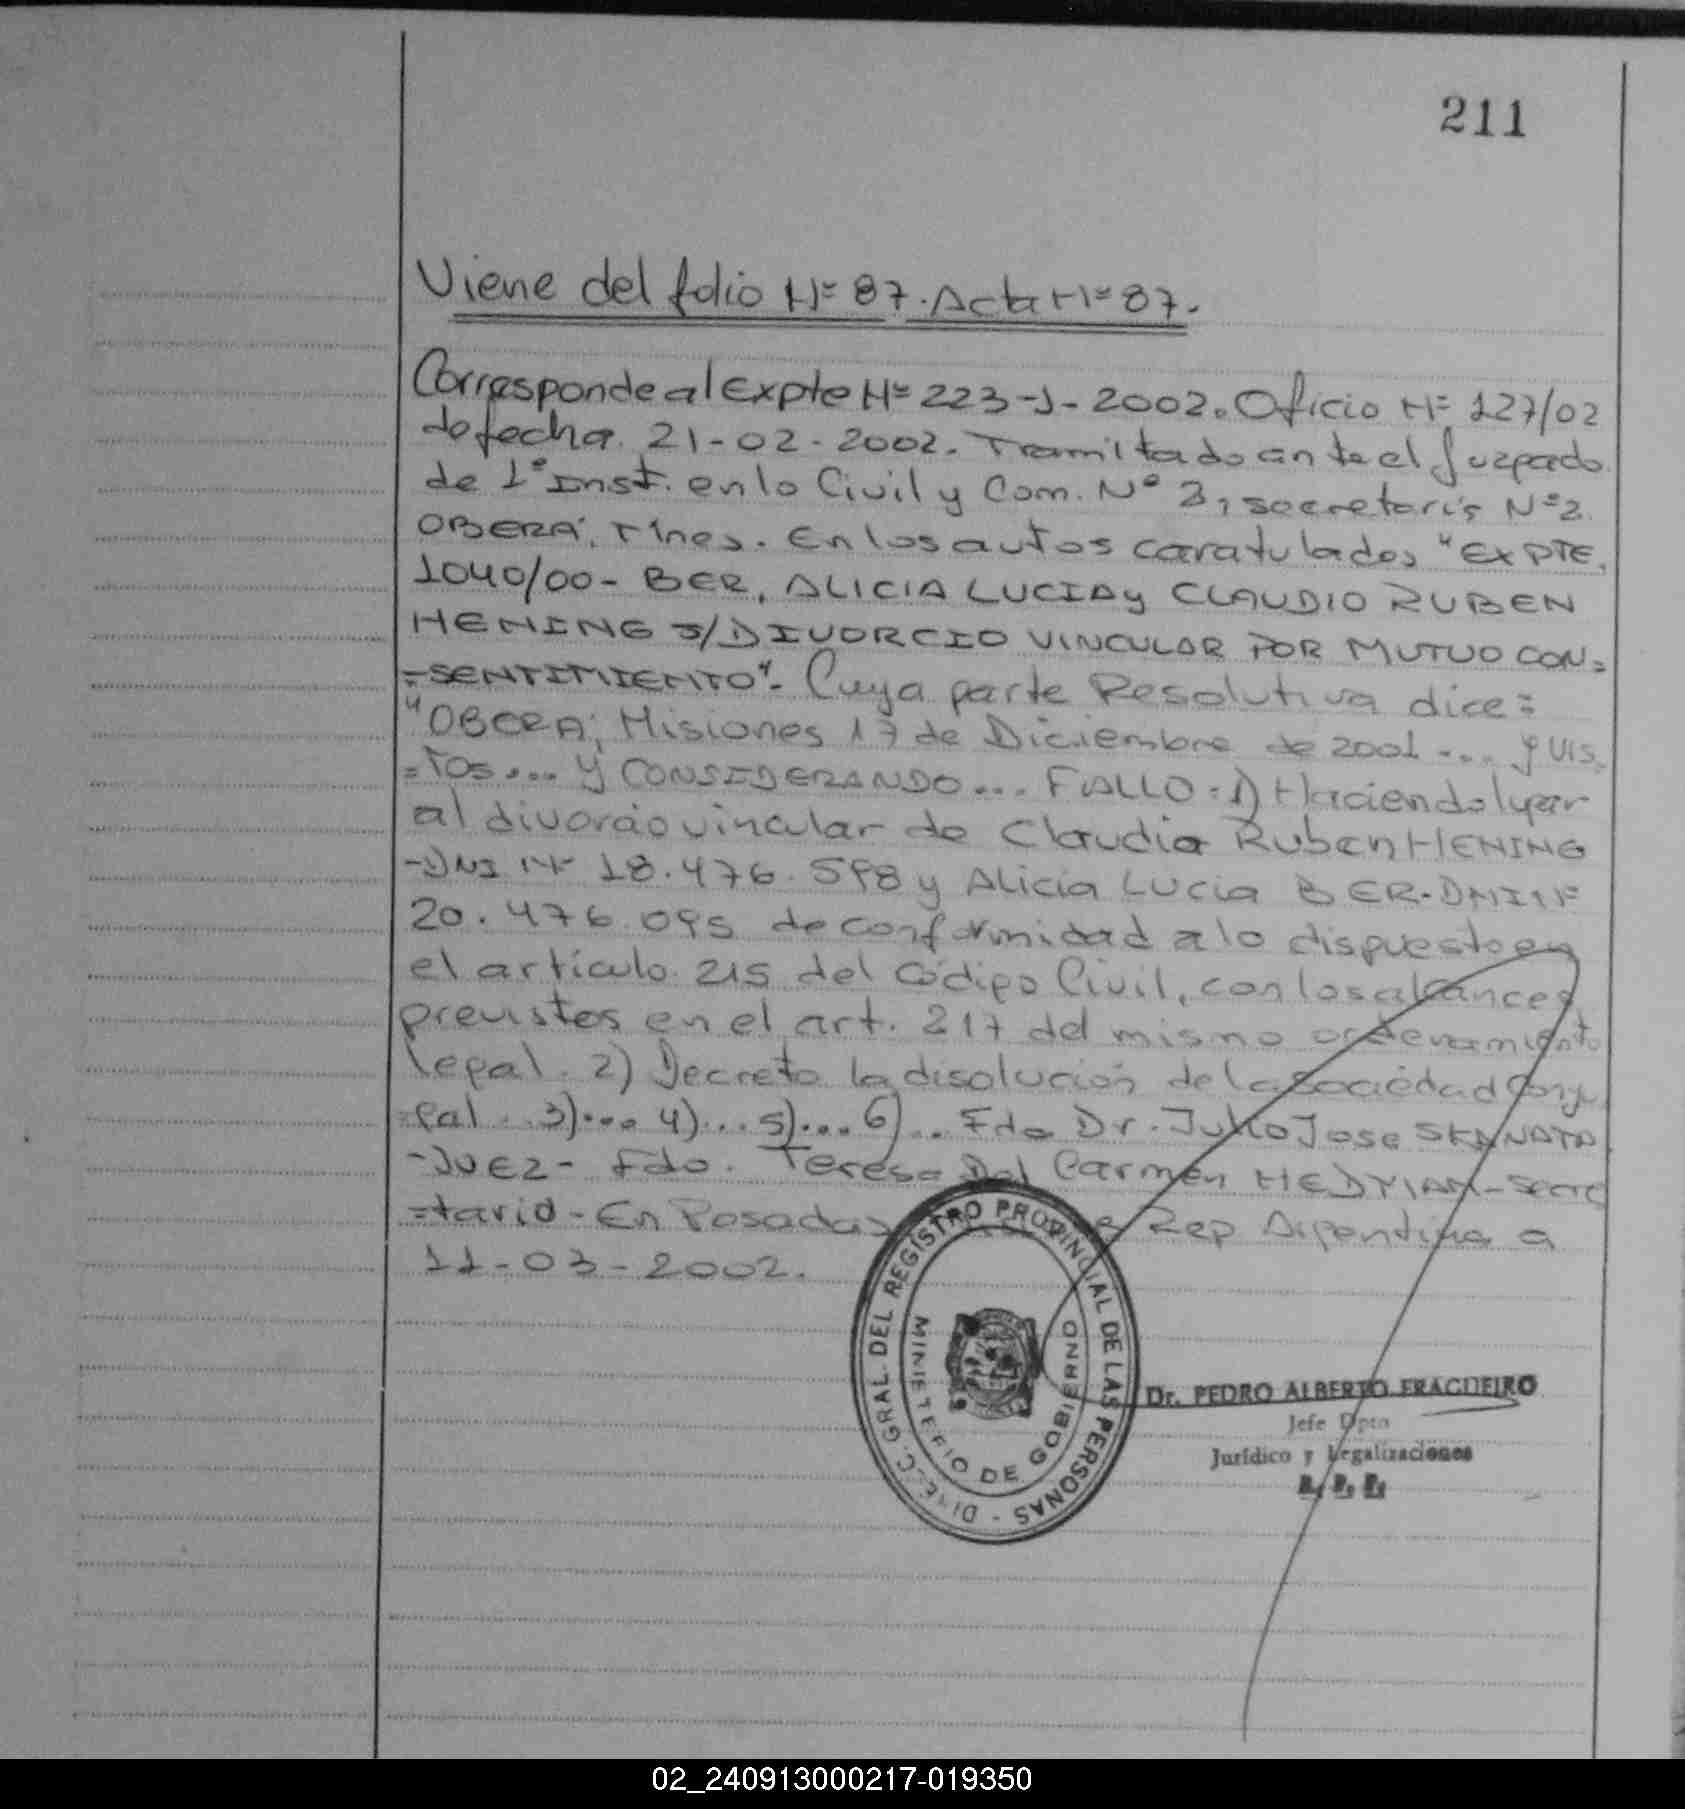 211
Viene del folio Nº 87. Acta Nº 87.
Corresponde al Expte Nº 223-J-2002. Oficio Nº 127/02
de fecha 21-02-2002. Tramitado ante el Juzgado
de 1º Inst. en lo Civil y Com. Nº 2, secretaria Nº 2.
OBERA, Mnes. En los autos caratulados "EXPTE.
1040/00- BER, ALICIA LUCIA y CLAUDIO RUBEN
HENING S/DIVORCIO VINCULAR POR MUTUO CON=
=SENTIMIENTO". Cuya parte Resolutiva dice:
"OBERA, Misiones 17 de Diciembre de 2001.... y VIS
=TOS.... y CONSIDERANDO... FALLO: 1) Haciendo lugar
al divorcio vincular de Claudio Ruben HENING
-DNI Nº 18.476.598 y Alicia Lucia BER-DNI Nº
20.476.095 de conformidad a lo dispuesto en
el artículo 215 del Código Civil, con los alcances
previstos en el art. 217 del mismo ordenamiento
legal. 2) Decreto la disolución de la sociedad Conyu
=gal. 3).... 4)... 5).... 6)... Fdo Dr. Julio Jose SKANATA
-JUEZ- Fdo. Teresa Del Carmen HEDMAN-Secre
=taria- En Posadas Rep Argentina a
11-03-2002.
DIREC. GRAL. DEL REGISTRO PROVINCIAL DE LAS PERSONAS -
MINISTERIO DE GOBIERNO
Dr. PEDRO ALBERTO FRAGUEIRO
Jefe Dpto
Jurídico y Legalizaciones
R. P. P.
02_240913000217-019350